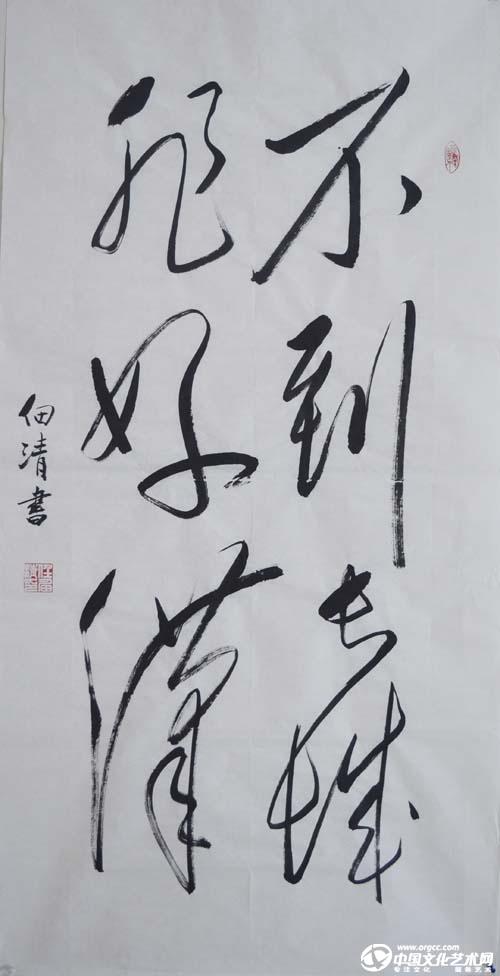 不到长城
非好汉
佃清書
www.orgcc.com
中国文化艺术网